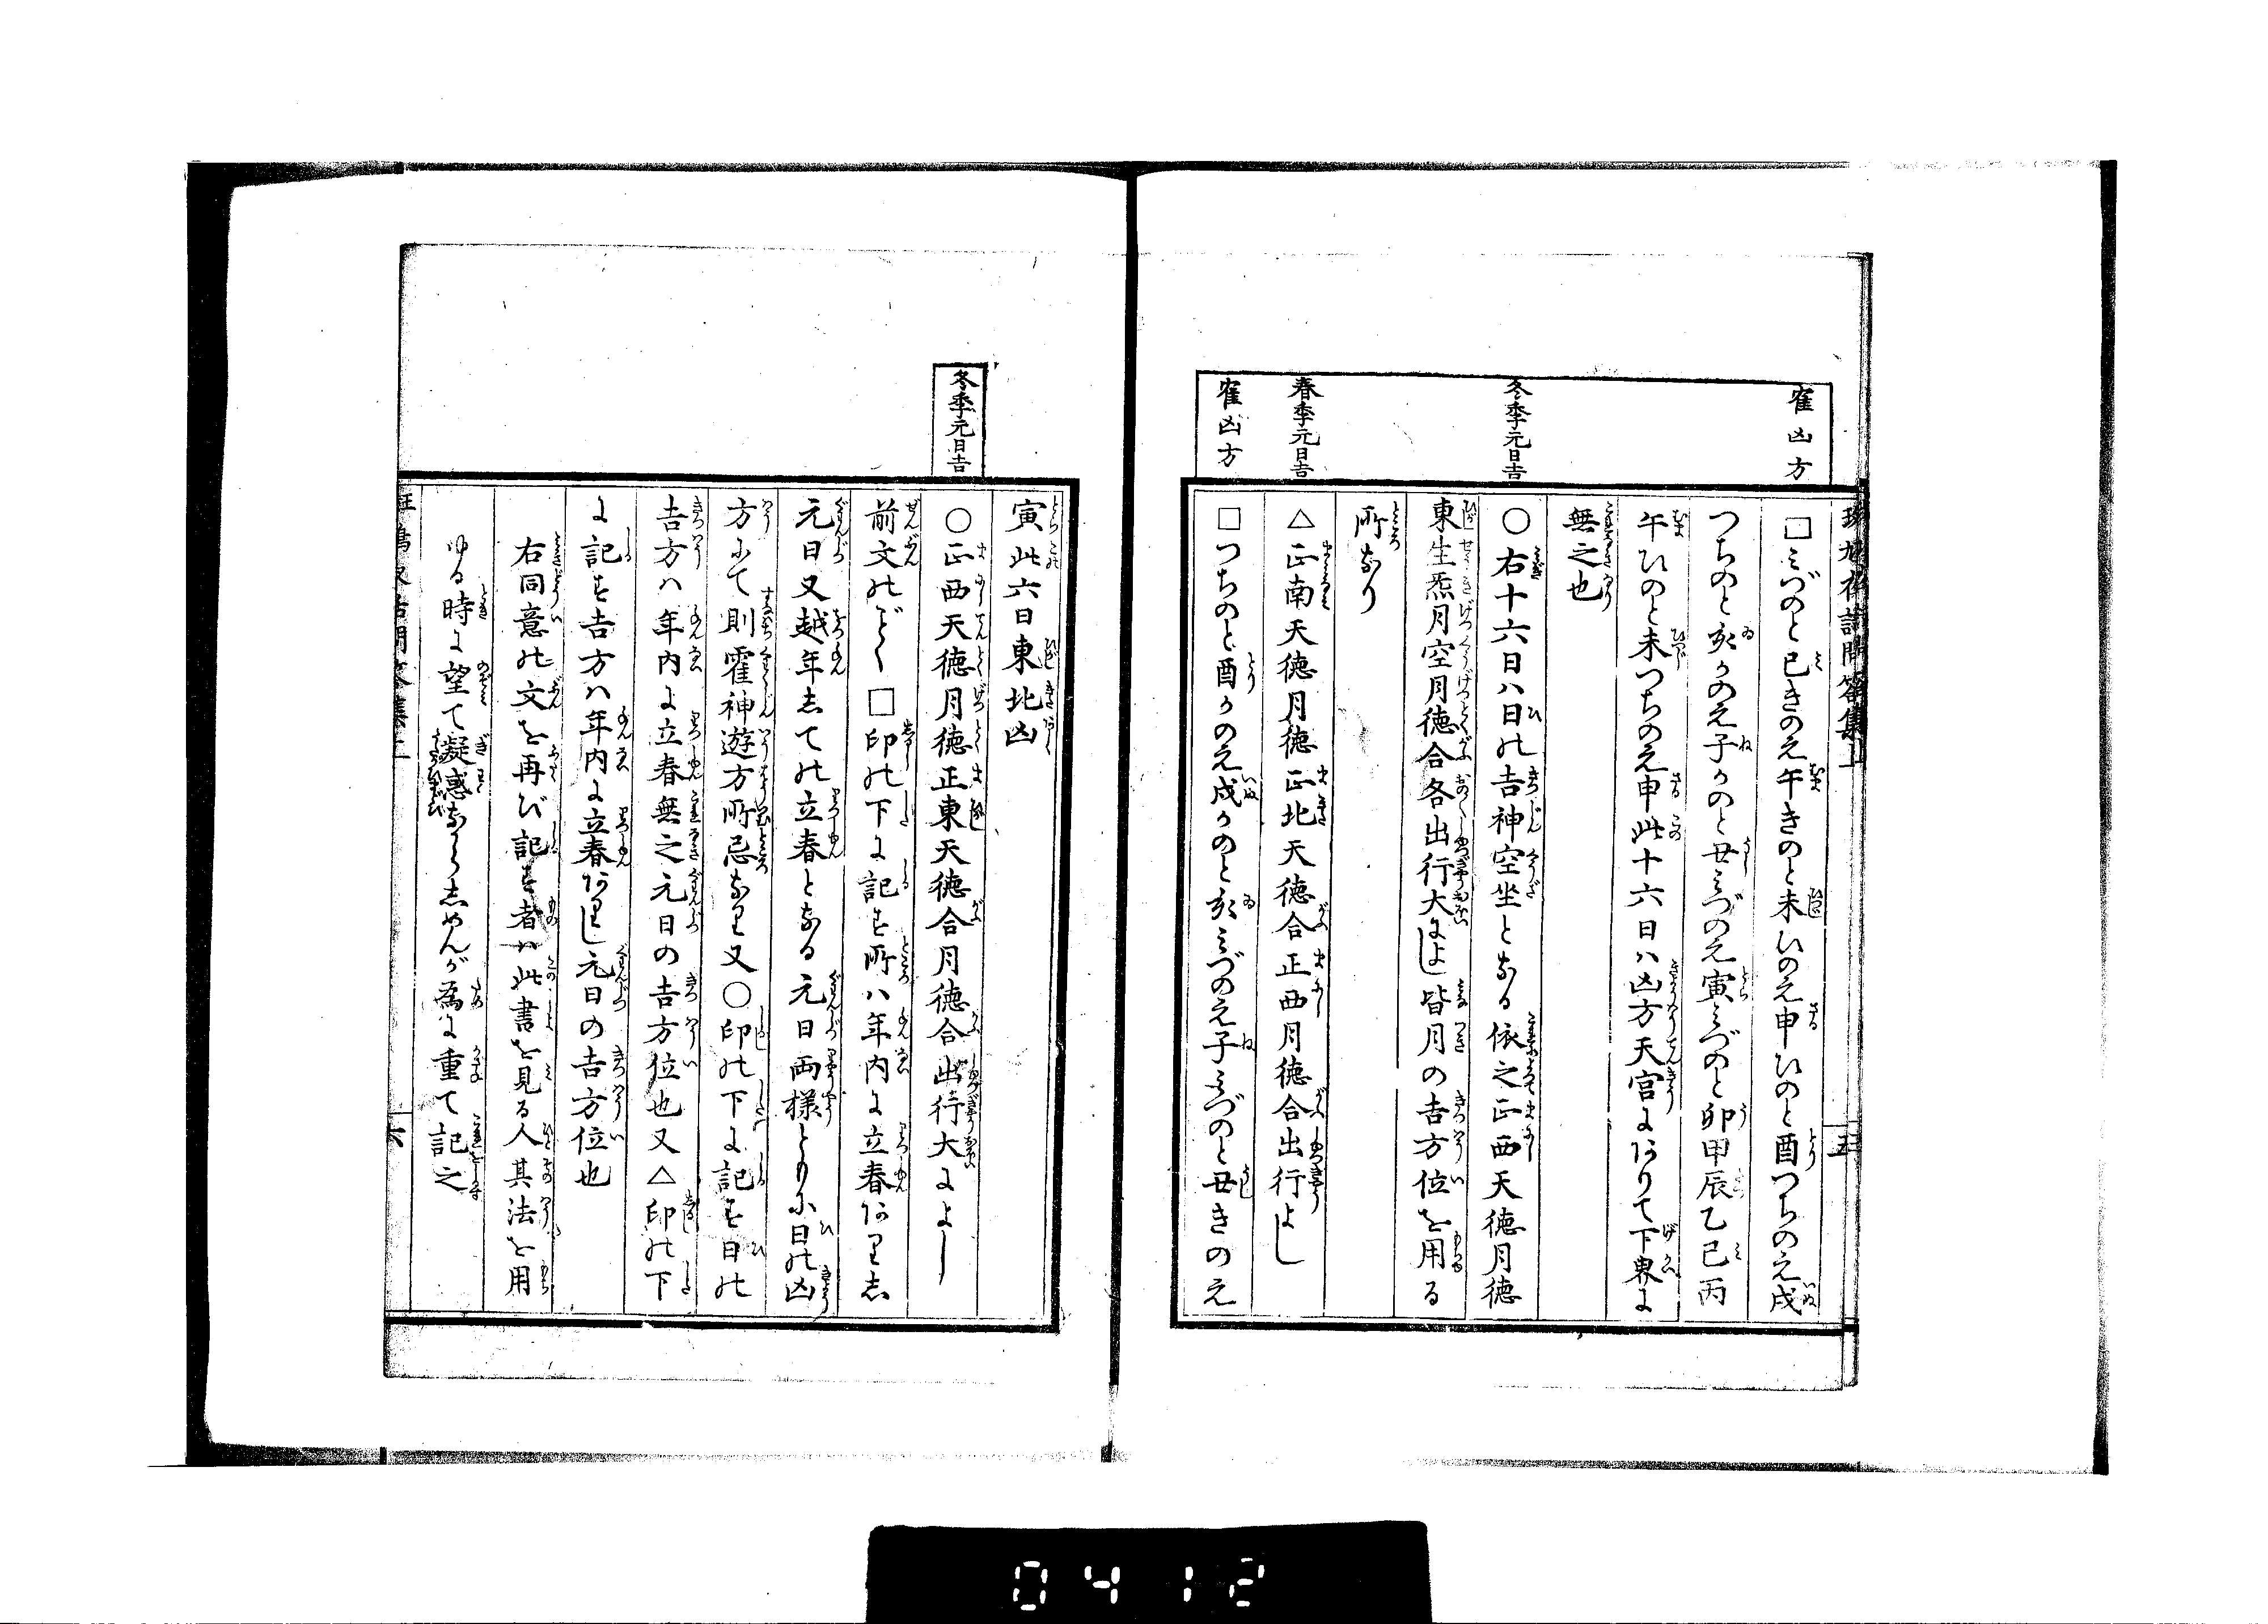 寉凶方
冬季元日吉
春季元日吉
寉凶方
□みづのと巳きのえ午きのと未ひのえ申ひのと酉つちのえ戌
つちのと亥かのえ子かのと丑みづのえ寅みづのと卯甲辰乙巳丙
午ひのと未つちのえ申此十六日ハ凶方天宮にありて下界に
無之也
○右十六日ハ日の吉神空坐となる依之正西天徳月徳
東生炁月空月徳合各出行大によし皆月の吉方位を用る
所なり
△正南天徳月徳正北天徳合正西月徳合出行よし
□つちのと酉かのえ戌かのと亥みづのえ子みづのと丑きのえ
五
冬季元日吉
寅此六日東北凶
○正西天徳月徳正東天徳合月徳合出行大によし
前文のごとく□印の下に記す所ハ年内に立春ありし
元日又越年しての立春となる元日両様とりに日の凶
方にて則霍神遊方所忌なり又○印の下に記す日の
吉方ハ年内に立春無之元日の吉方位也又△印の下
に記す吉方ハ年内に立春ありし元日の吉方位也
右同意の文を再び記す者ハ此書を見る人其法を用
ゆる時に望て凝惑ならしめんが為に重て記之
六
0412